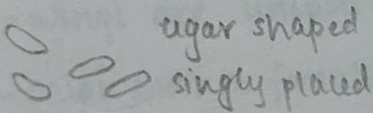 ugar shaped
singly placed